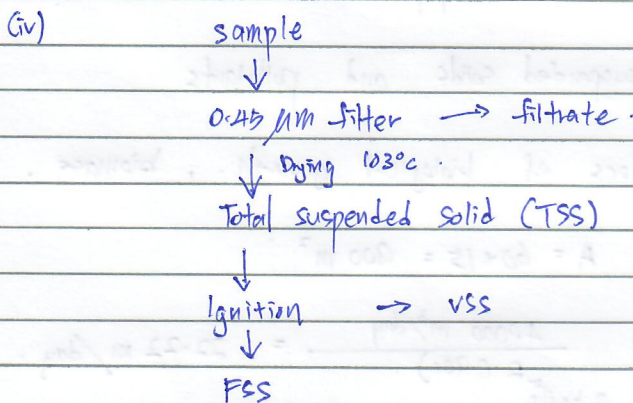 (iv) sample
↓
0.45 μm filter → filtrate.
↓ Drying 103°c.
Total suspended solid (TSS)
↓
Ignition → VSS
↓
FSS